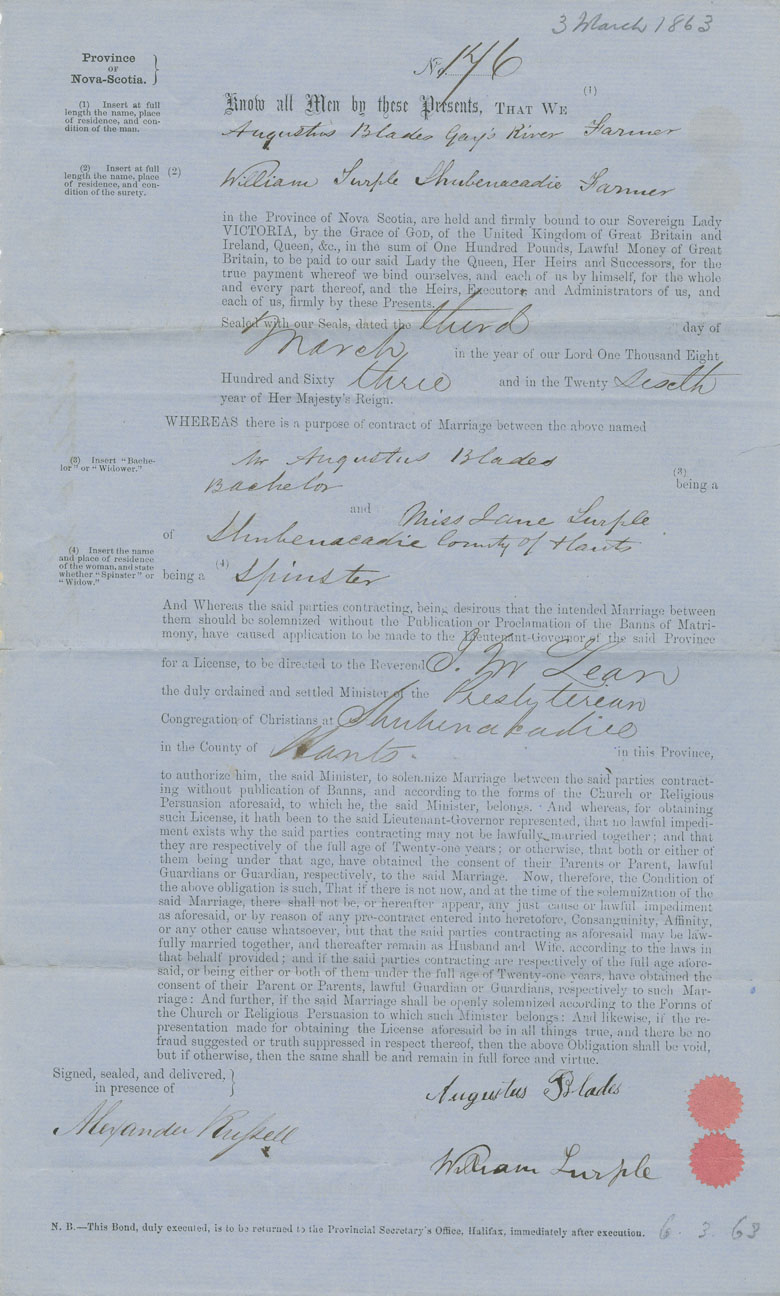 3 March 1863
Province
OF
Nova-Scotia.
No. 176
Know all Men by these Presents, THAT WE (1)
(1) Insert at full
length the name, place
of residence, and con-
dition of the man.
Augustus Blades Gay's River Farmer
(2) Insert at full
length the name, place
of residence, and con-
dition of the surety.
(2) William Surple Shubenacadie Farmer
in the Province of Nova Scotia, are held and firmly bound to our Sovereign Lady
VICTORIA, by the Grace of GOD, of the United Kingdom of Great Britain and
Ireland, Queen, &c., in the sum of One Hundred Pounds, Lawful Money of Great
Britain, to be paid to our said Lady the Queen, Her Heirs and Successors, for the
true payment whereof we bind ourselves, and each of us by himself, for the whole
and every part thereof, and the Heirs, Executors, and Administrators of us, and
each of us, firmly by these Presents.
Sealed with our Seals, dated the third day of
March in the year of our Lord One Thousand Eight
Hundred and Sixty three and in the Twenty Sixth
year of Her Majesty's Reign.
WHEREAS there is a purpose of contract of Marriage between the above named
(3) Insert "Bache-
lor" or "Widower."
Mr Augustus Blades
(3)
Bachelor being a
and Miss Jane Surple
of Shubenacadie County of Hants
(4) Insert the name
and place of residence
of the woman, and state
whether "Spinster" or
"Widow."
being a (4) Spinster
And Whereas the said parties contracting, being desirous that the intended Marriage between
them should be solemnized without the Publication or Proclamation of the Banns of Matri-
mony, have caused application to be made to the Lieutenant-Governor of the said Province
for a License, to be directed to the Reverend J. Mc Lean
the duly ordained and settled Minister of the Presbyterian
Congregation of Christians at Shubenacadie
in the County of Hants. in this Province,
to authorize him, the said Minister, to solemnize Marriage between the said parties contract-
ing without publication of Banns, and according to the forms of the Church or Religious
Persuasion aforesaid, to which he, the said Minister, belongs. And whereas, for obtaining
such License, it hath been to the said Lieutenant-Governor represented, that no lawful impedi-
ment exists why the said parties contracting may not be lawfully married together; and that
they are respectively of the full age of Twenty-one years; or otherwise, that both or either of
them being under that age, have obtained the consent of their Parents or Parent, lawful
Guardians or Guardian, respectively, to the said Marriage. Now, therefore, the Condition of
the above obligation is such, That if there is not now, and at the time of the solemnization of the
said Marriage, there shall not be, or hereafter appear, any just cause or lawful impediment
as aforesaid, or by reason of any pre-contract entered into heretofore, Consanguinity, Affinity,
or any other cause whatsoever, but that the said parties contracting as aforesaid may be law-
fully married together, and thereafter remain as Husband and Wife, according to the laws in
that behalf provided; and if the said parties contracting are respectively of the full age afore-
said, or being either or both of them under the full age of Twenty-one years, have obtained the
consent of their Parent or Parents, lawful Guardian or Guardians, respectively to such Mar-
riage: And further, if the said Marriage shall be openly solemnized according to the Forms of
the Church or Religious Persuasion to which such Minister belongs: And likewise, if the re-
presentation made for obtaining the License aforesaid be in all things true, and there be no
fraud suggested or truth suppressed in respect thereof, then the above Obligation shall be void,
but if otherwise, then the same shall be and remain in full force and virtue.
Signed, sealed, and delivered,
in presence of
Augustus Blades
Alexander Russell
William Surple
N. B.—This Bond, duly executed, is to be returned to the Provincial Secretary's Office, Halifax, immediately after execution. 6. 3. 63